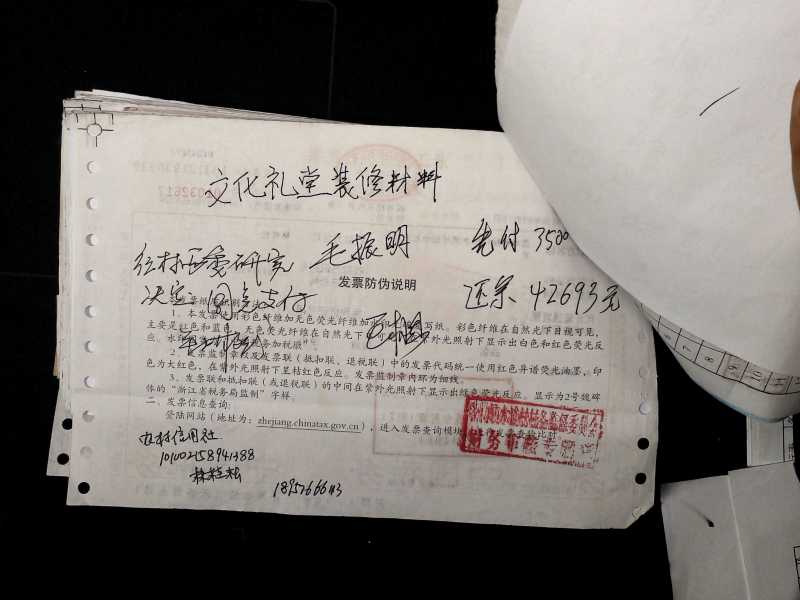 文化礼堂装修材料
毛振明
先付3500
经村两委研究
发票防伪说明
决定:同意支付
还余42693元
1、本发票使用彩色纤维加无色荧光纤维加水印 写纸。彩色纤维在自然光下目视可见,
主要是红色和蓝色。无色荧光纤维在自然光下 可 紫外光照射下显示出白色和红色荧光反
应。水印 税务加税徽"
2、发票监制章及发票联(抵扣联、退税联)中的发票代码统一使用红色异谱荧光油墨,印
色为大红色,在紫外光照射下呈桔红色反应。发票监制章内环为细线。
3、发票联和抵扣联(或退税联)的中间在紫外光照射下显示出绿色荧光反应。显示为2号魏碑
体的"浙江省税务局监制"字样。
二、发票信息查询:
登陆网站(地址为:zhejiang.chinatax.gov.cn),进入发票查询模块
农村信用社
财务审核